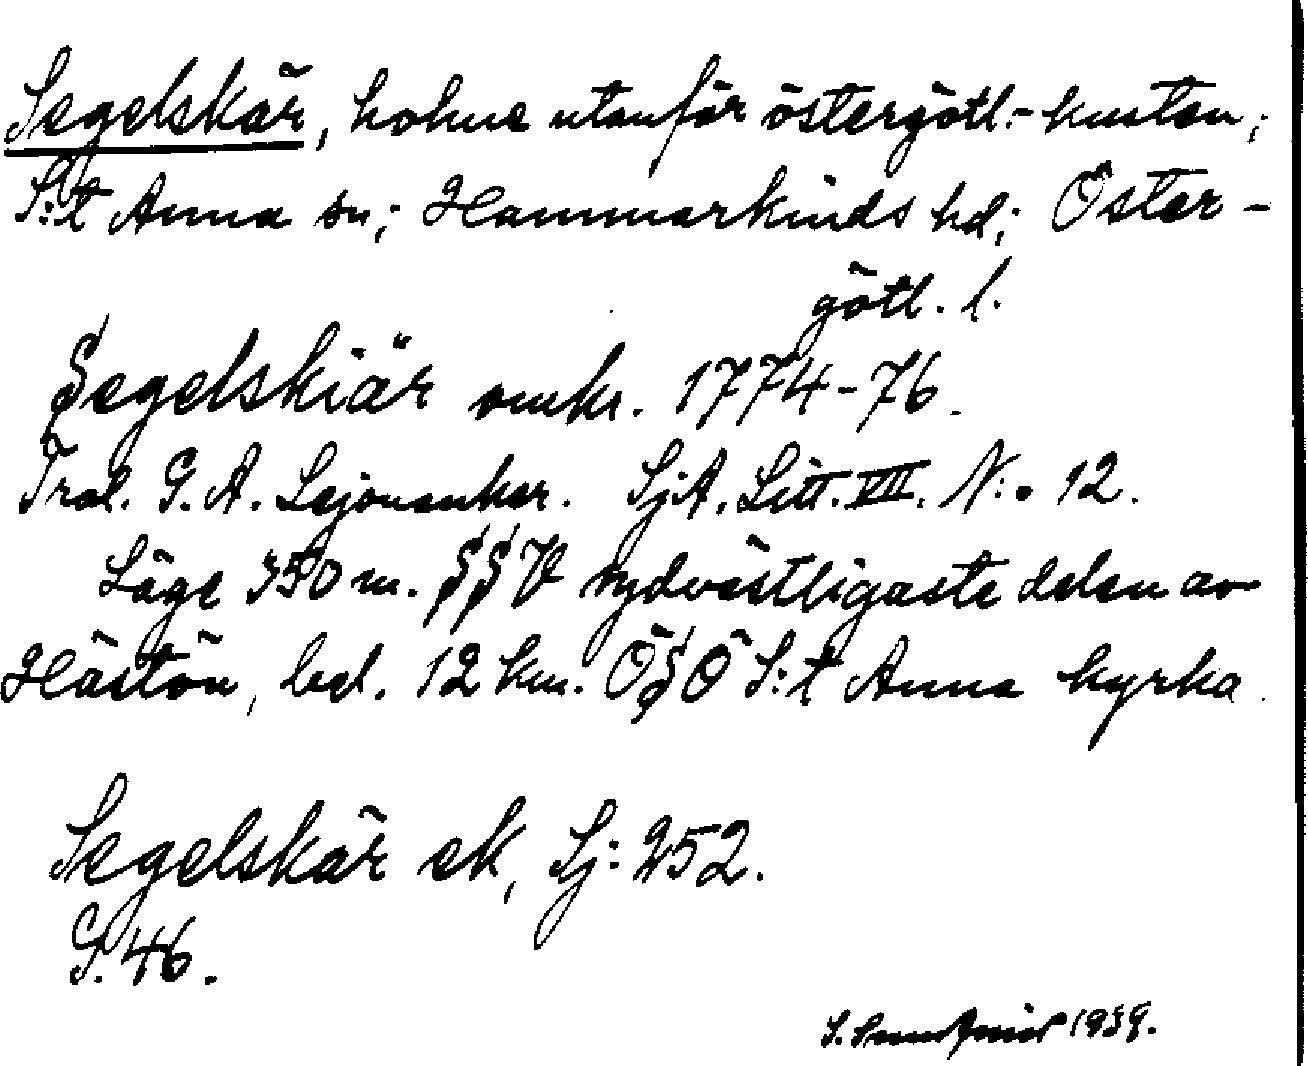 Segelskär, holme utanför östergötl.-kusten;
S:t Anna sn; Hammarkinds hd; Öster-
götl. l.
Segelskiär omkr. 1774-76.
Trol. G. A. Lejonanker. SjA. Litt. VIII. N:o 12.
Läge 350 m. SSV sydvästligaste delen av
Hästön, bel. 12 km. ÖSÖ S:t Anna kyrka.
Segelskär ek, Sj: 252.
S. 46.
S. 1939.